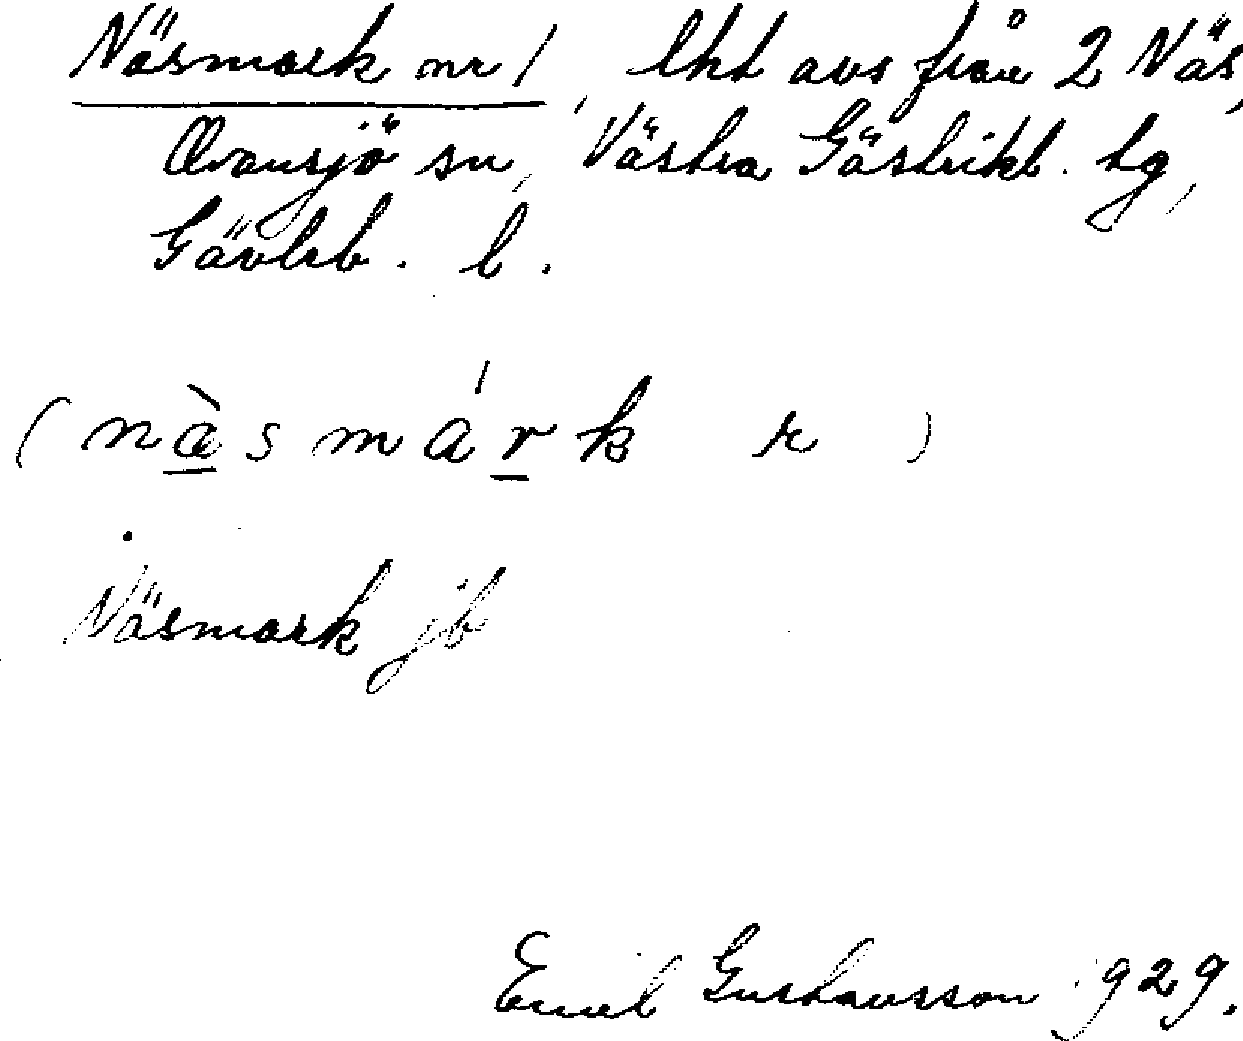 Näsmark nr 1, lht avs från 2 Näs,
Ovansjö sn, Västra Gästrikl. tg,
Gävleb. l.
(näsmárk r)
Näsmark jb
Emil Gustavsson 1929.